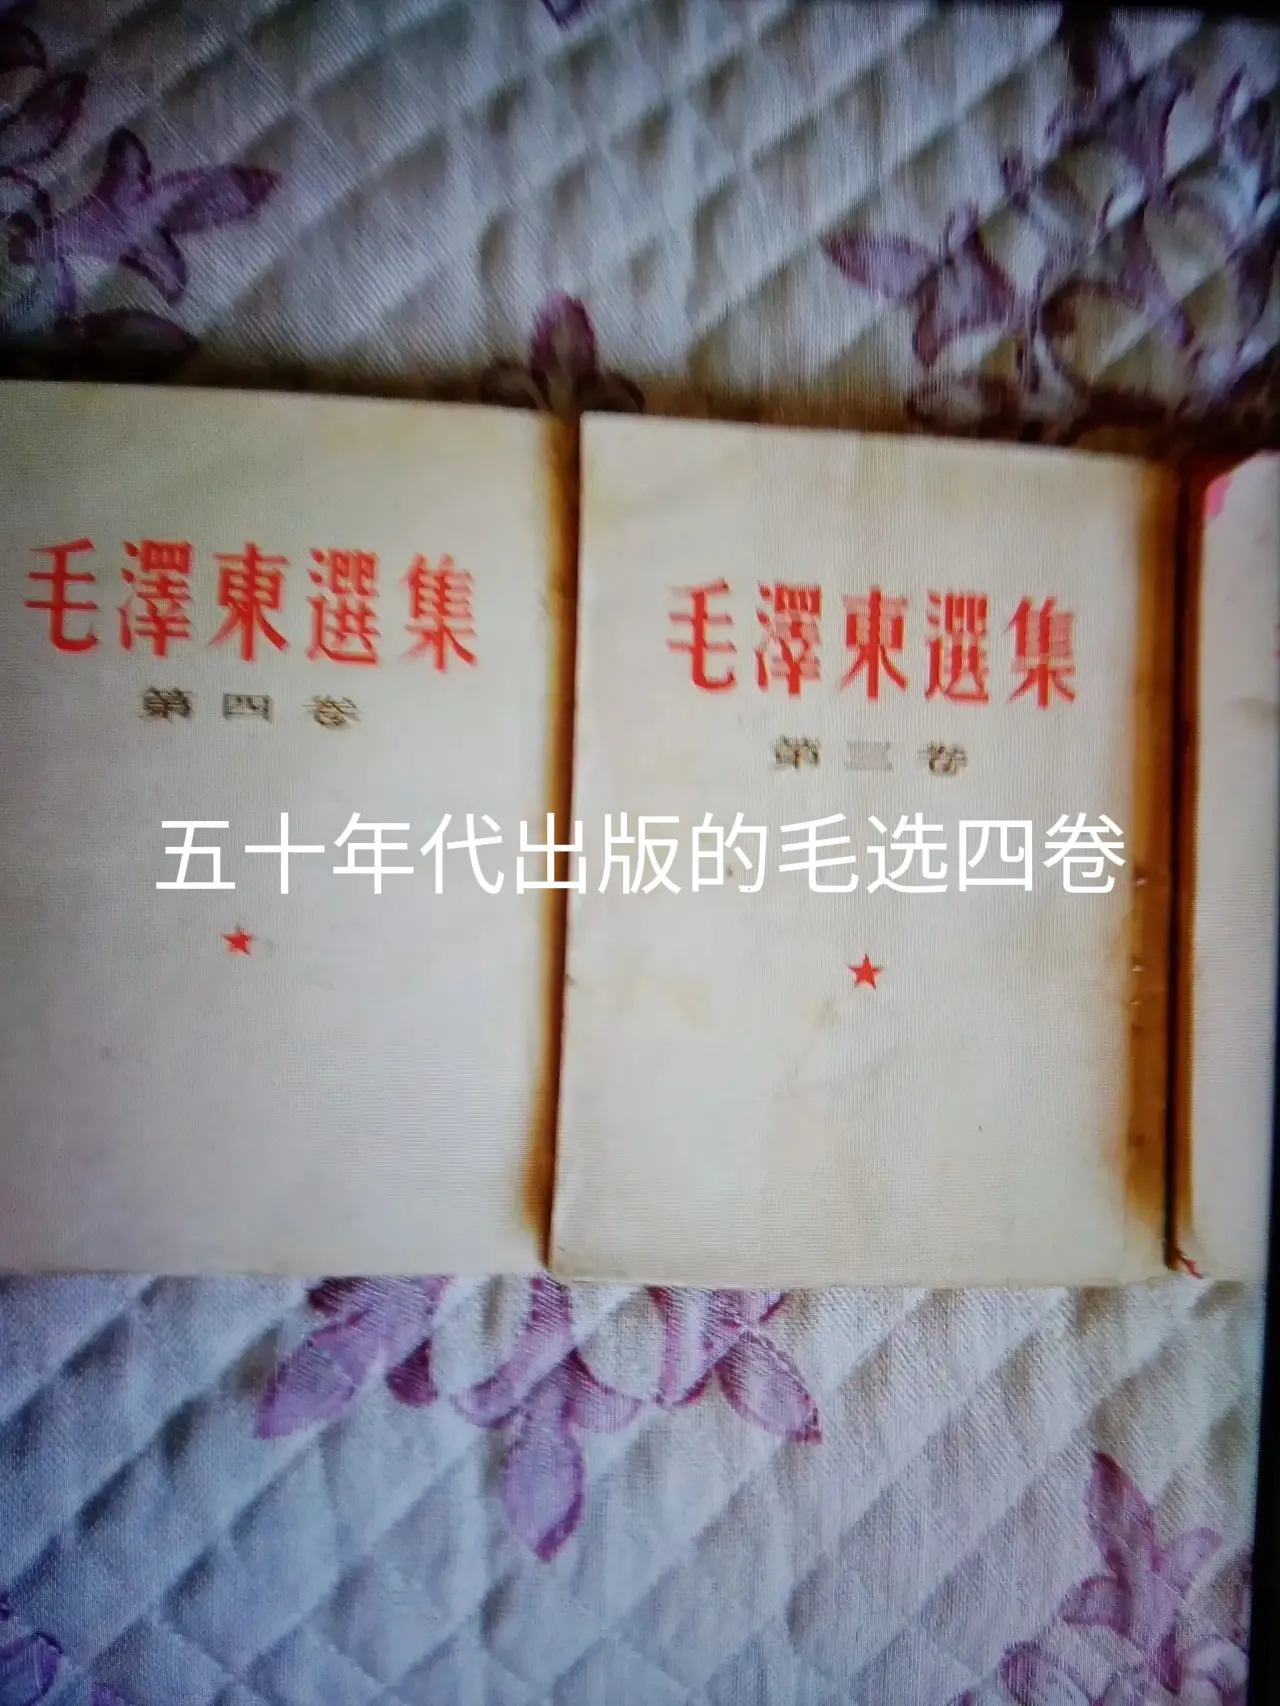 毛澤東選集
第四卷
毛澤東選集
第三卷
五十年代出版的毛选四卷